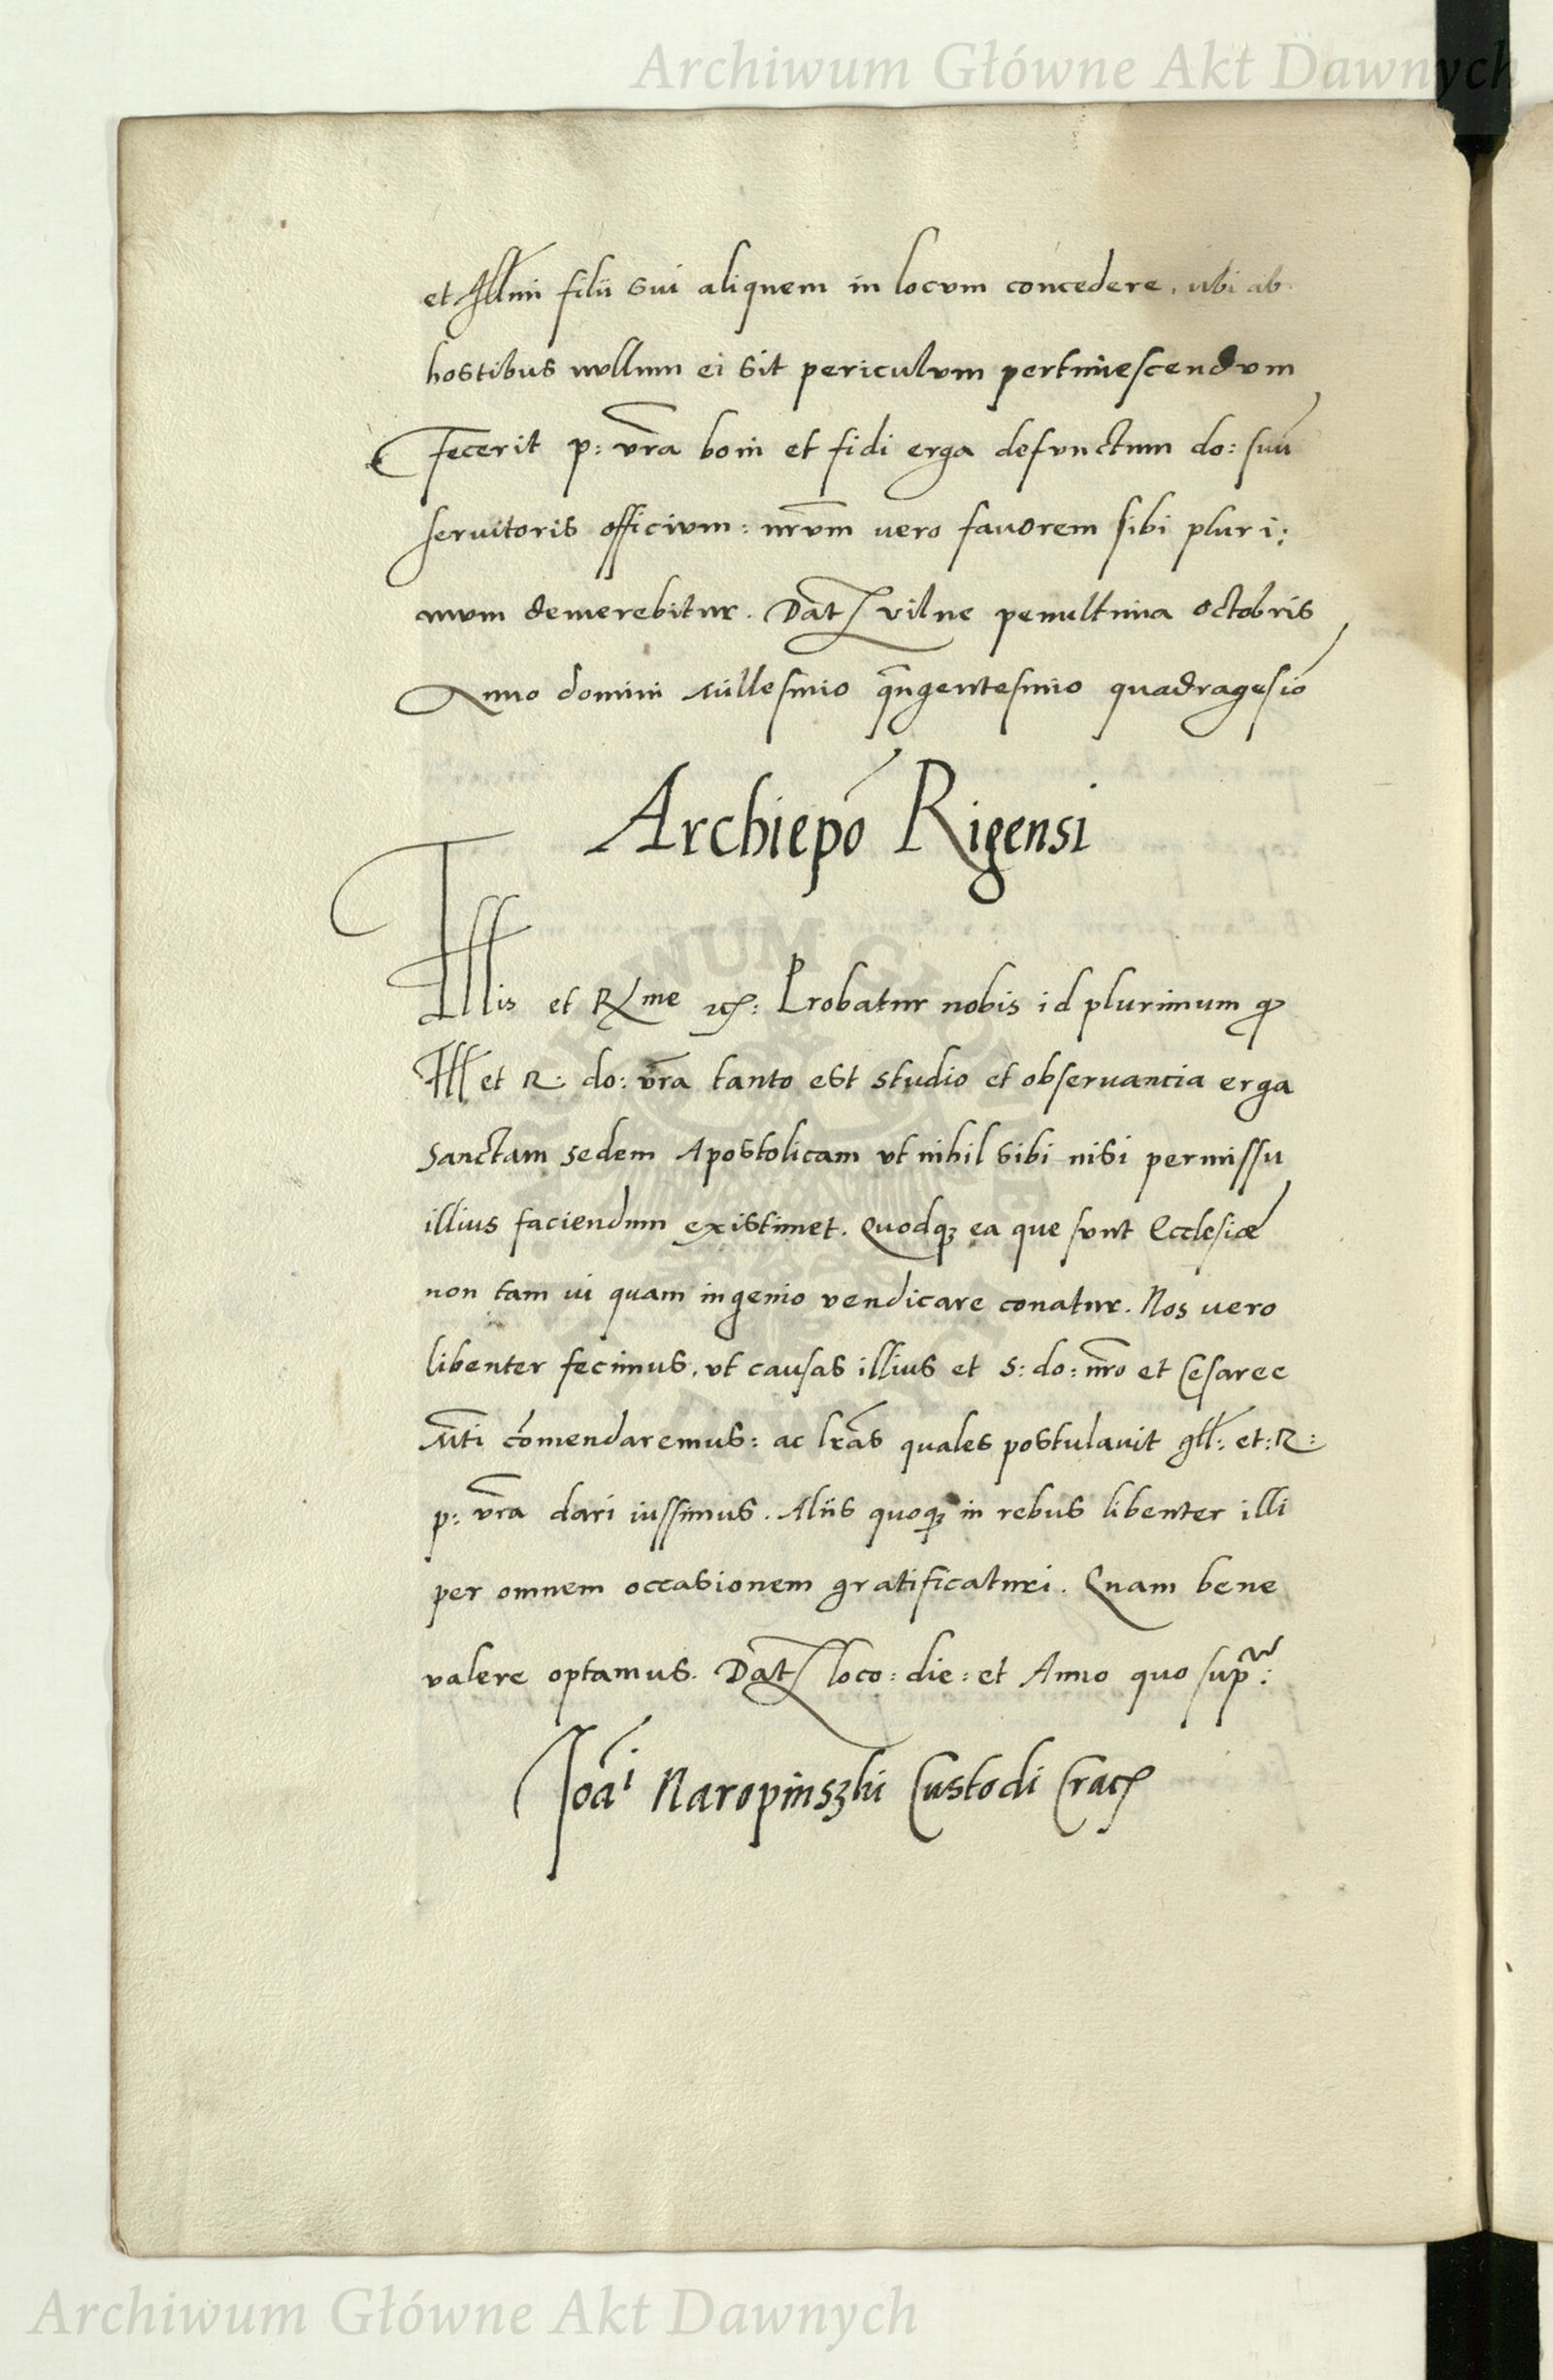 Archiwum Główne Akt Dawnych
et Illmi filii sui aliquem in locum concedere, ubi ab
hostibus nullum ei sit periculum pertimescendum
Fecerit p: vra boni et fidi erga defunctum do: suu
servitoris officium: nrum vero favorem sibi pluri:
mum demerebitur. Dat vilne penultima octobris
Anno domini Millesimo qngentesimo quadragesio
Archiepo Rigensi
Illis et Rme etc: Probatur nobis id plurimum qd
Ill et R: do: vra tanto est studio et observancia erga
Sanctam sedem Apostolicam ut nihil sibi nisi permissu
illius faciendum existimet. Quodq; ea que sunt Ecclesiæ
non tam vi quam ingenio vendicare conatur. Nos vero
libenter fecimus, ut causas illius et S: do: nro et Cesaree
Mti comendaremus: ac lras quales postulavit Ill: et: R:
p: vra dari iussimus. Aliis quoq; in rebus libenter illi
per omnem occasionem gratificaturi. Quam bene
valere optamus. Dat loco: die: et Anno quo supra:
Joai Naropinszki Custodi Crac
Archiwum Główne Akt Dawnych